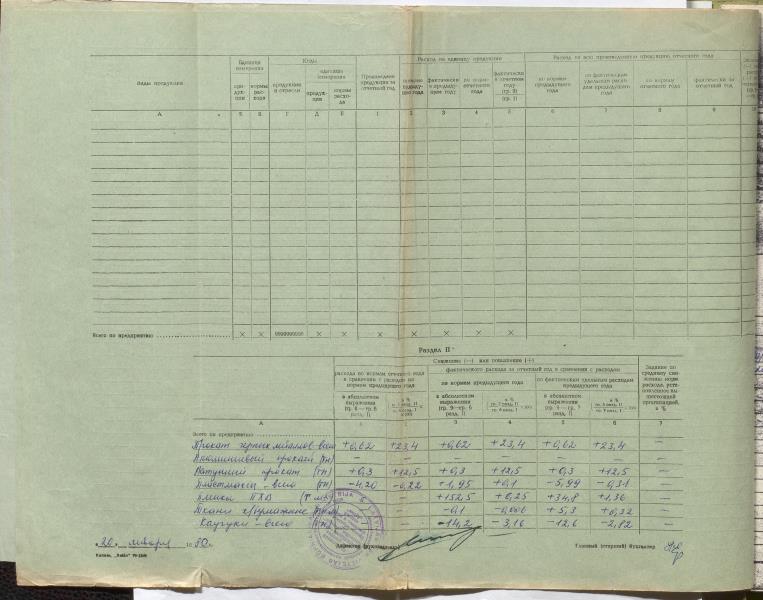 Виды продукции
Единица измерения
продукции
нормы расхода
Коды
продукции и отрасли
единицы измерения
продукции
нормы расхода
Произведено продукции за отчетный год
Расход на единицу продукции
фактически в предыдущем году
по норме отчетного года
фактически в отчетном году
(гр. 9)
(гр. 1)
Расход на всю произведенную продукцию отчетного года
по нормам предыдущего года
по фактическим удельным расходам предыдущего года
по нормам отчетного года
фактически за отчетный год
А Б В Г Д Е 1 2 3 4 5 6 7 8 9
Всего по предприятию × × 0000000000 × × × × × ×
Раздел II
Снижение (—) или повышение (+)
расхода по нормам отчетного года в сравнении с расходом по нормам предыдущего года
фактического расхода за отчетный год в сравнении с расходом
по нормам предыдущего года
по фактическим удельным расходам предыдущего года
Задание по среднему снижению норм расхода, установленное вышестоящей организацией, в %
в абсолютном выражении (гр. 8—гр. 6 разд. I)
в %
в абсолютном выражении (гр. 9—гр. 6 разд. I)
в %
в абсолютном выражении (гр. 9—гр. 7 разд. I)
в %
А 1 2 3 4 5 6 7
Всего по предприятию
Прокат черных металлов всего +0,62 +23,4 +0,62 +23,4 +0,62 +23,4 —
Алюминиевый прокат (тн) — — — — — — —
Латунный прокат (тн) +0,3 +12,5 +0,3 +12,5 +0,3 +12,5 —
Пластмассы - всего (тн) -4,20 -0,22 +1,95 +0,1 -5,99 -0,31 —
Пленки ПХВ — +152,5 +0,25 +34,8 +1,36 —
Ткани х/бумажные — -0,1 -0,006 +5,3 +0,32 —
Каучуки - всего (тн) — -14,2 -3,16 -12,6 -2,82 —
"20" января 1980 г.
Директор (руководитель)
Главный (старший) бухгалтер